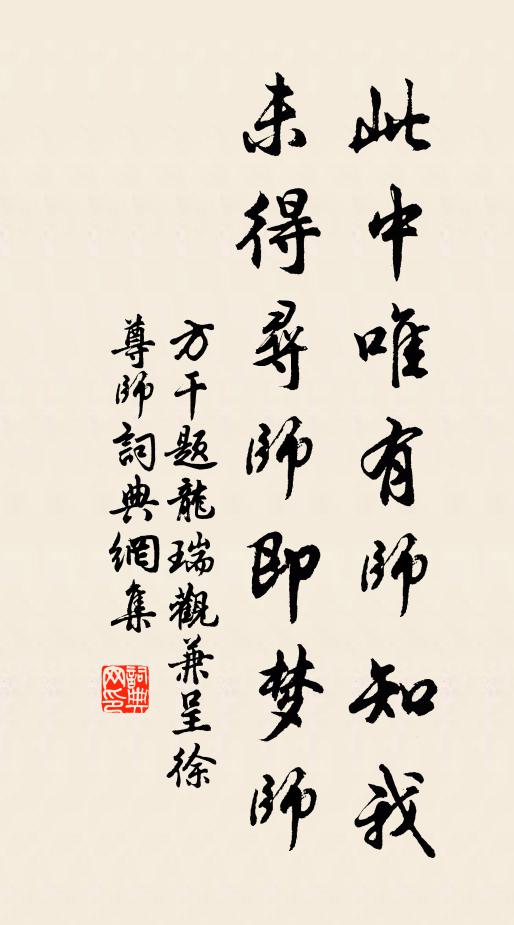 此中唯有师知我
未得尋师即梦师
方干题龍瑞觀兼呈徐
尊师詞典網集
詞典网印